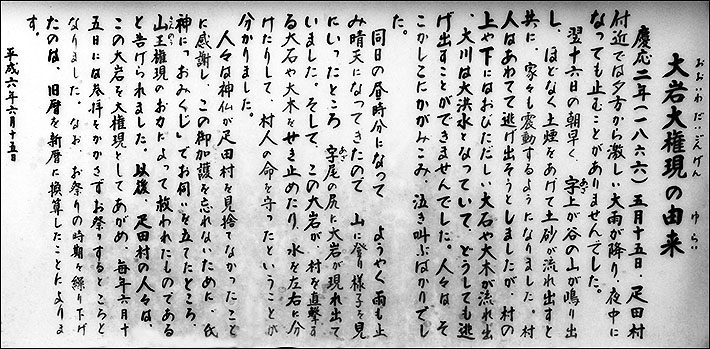 大岩大権現の由来
おおいわだいごんげん ゆらい
慶応二年(一八六六)五月十五日、疋田村
付近では夕方から激しい大雨が降り、夜中に
なっても止むことがありませんでした。
翌十六日の朝早く、字上が谷の山が鳴り出
し、ほどなく土煙をあげて土砂が流れ出すと
共に、家々も震動するようになりました。村
人はあわてて逃げ出そうとしましたが、村の
上や下にはおびただしい大石や大木が流れ出
、大川は大洪水となっていて、どうしても逃
げ出すことができませんでした。人々は、そ
こかしこにかがみこみ、泣き叫ぶばかりでし
た。
同日の昼時分になって ようやく雨も止
み晴天になってきたので 山に登り様子を見
にいったところ 字尾の尻に大岩が現れ出て
いました。そして、この大岩が、村を直撃す
る大石や大木をせき止めたり、水を左右に分
けたりして、村人の命を守ったということが
分かりました。
人々は神仏が疋田村を見捨てなかったこと
に感謝し、この御加護を忘れないために、氏
神に「おみくじ」でお伺いを立てたところ
山王権現のお力によって救われたものである
と告げられました。以後、疋田村の人々は、
この大岩を大権現としてあがめ、毎年六月十
五日には参拝をかかさずお祭りするところと
なりました。なお、お祭りの時期を繰り下げ
たのは、旧暦を新暦に換算したことによりま
す。
平成六年六月十五日